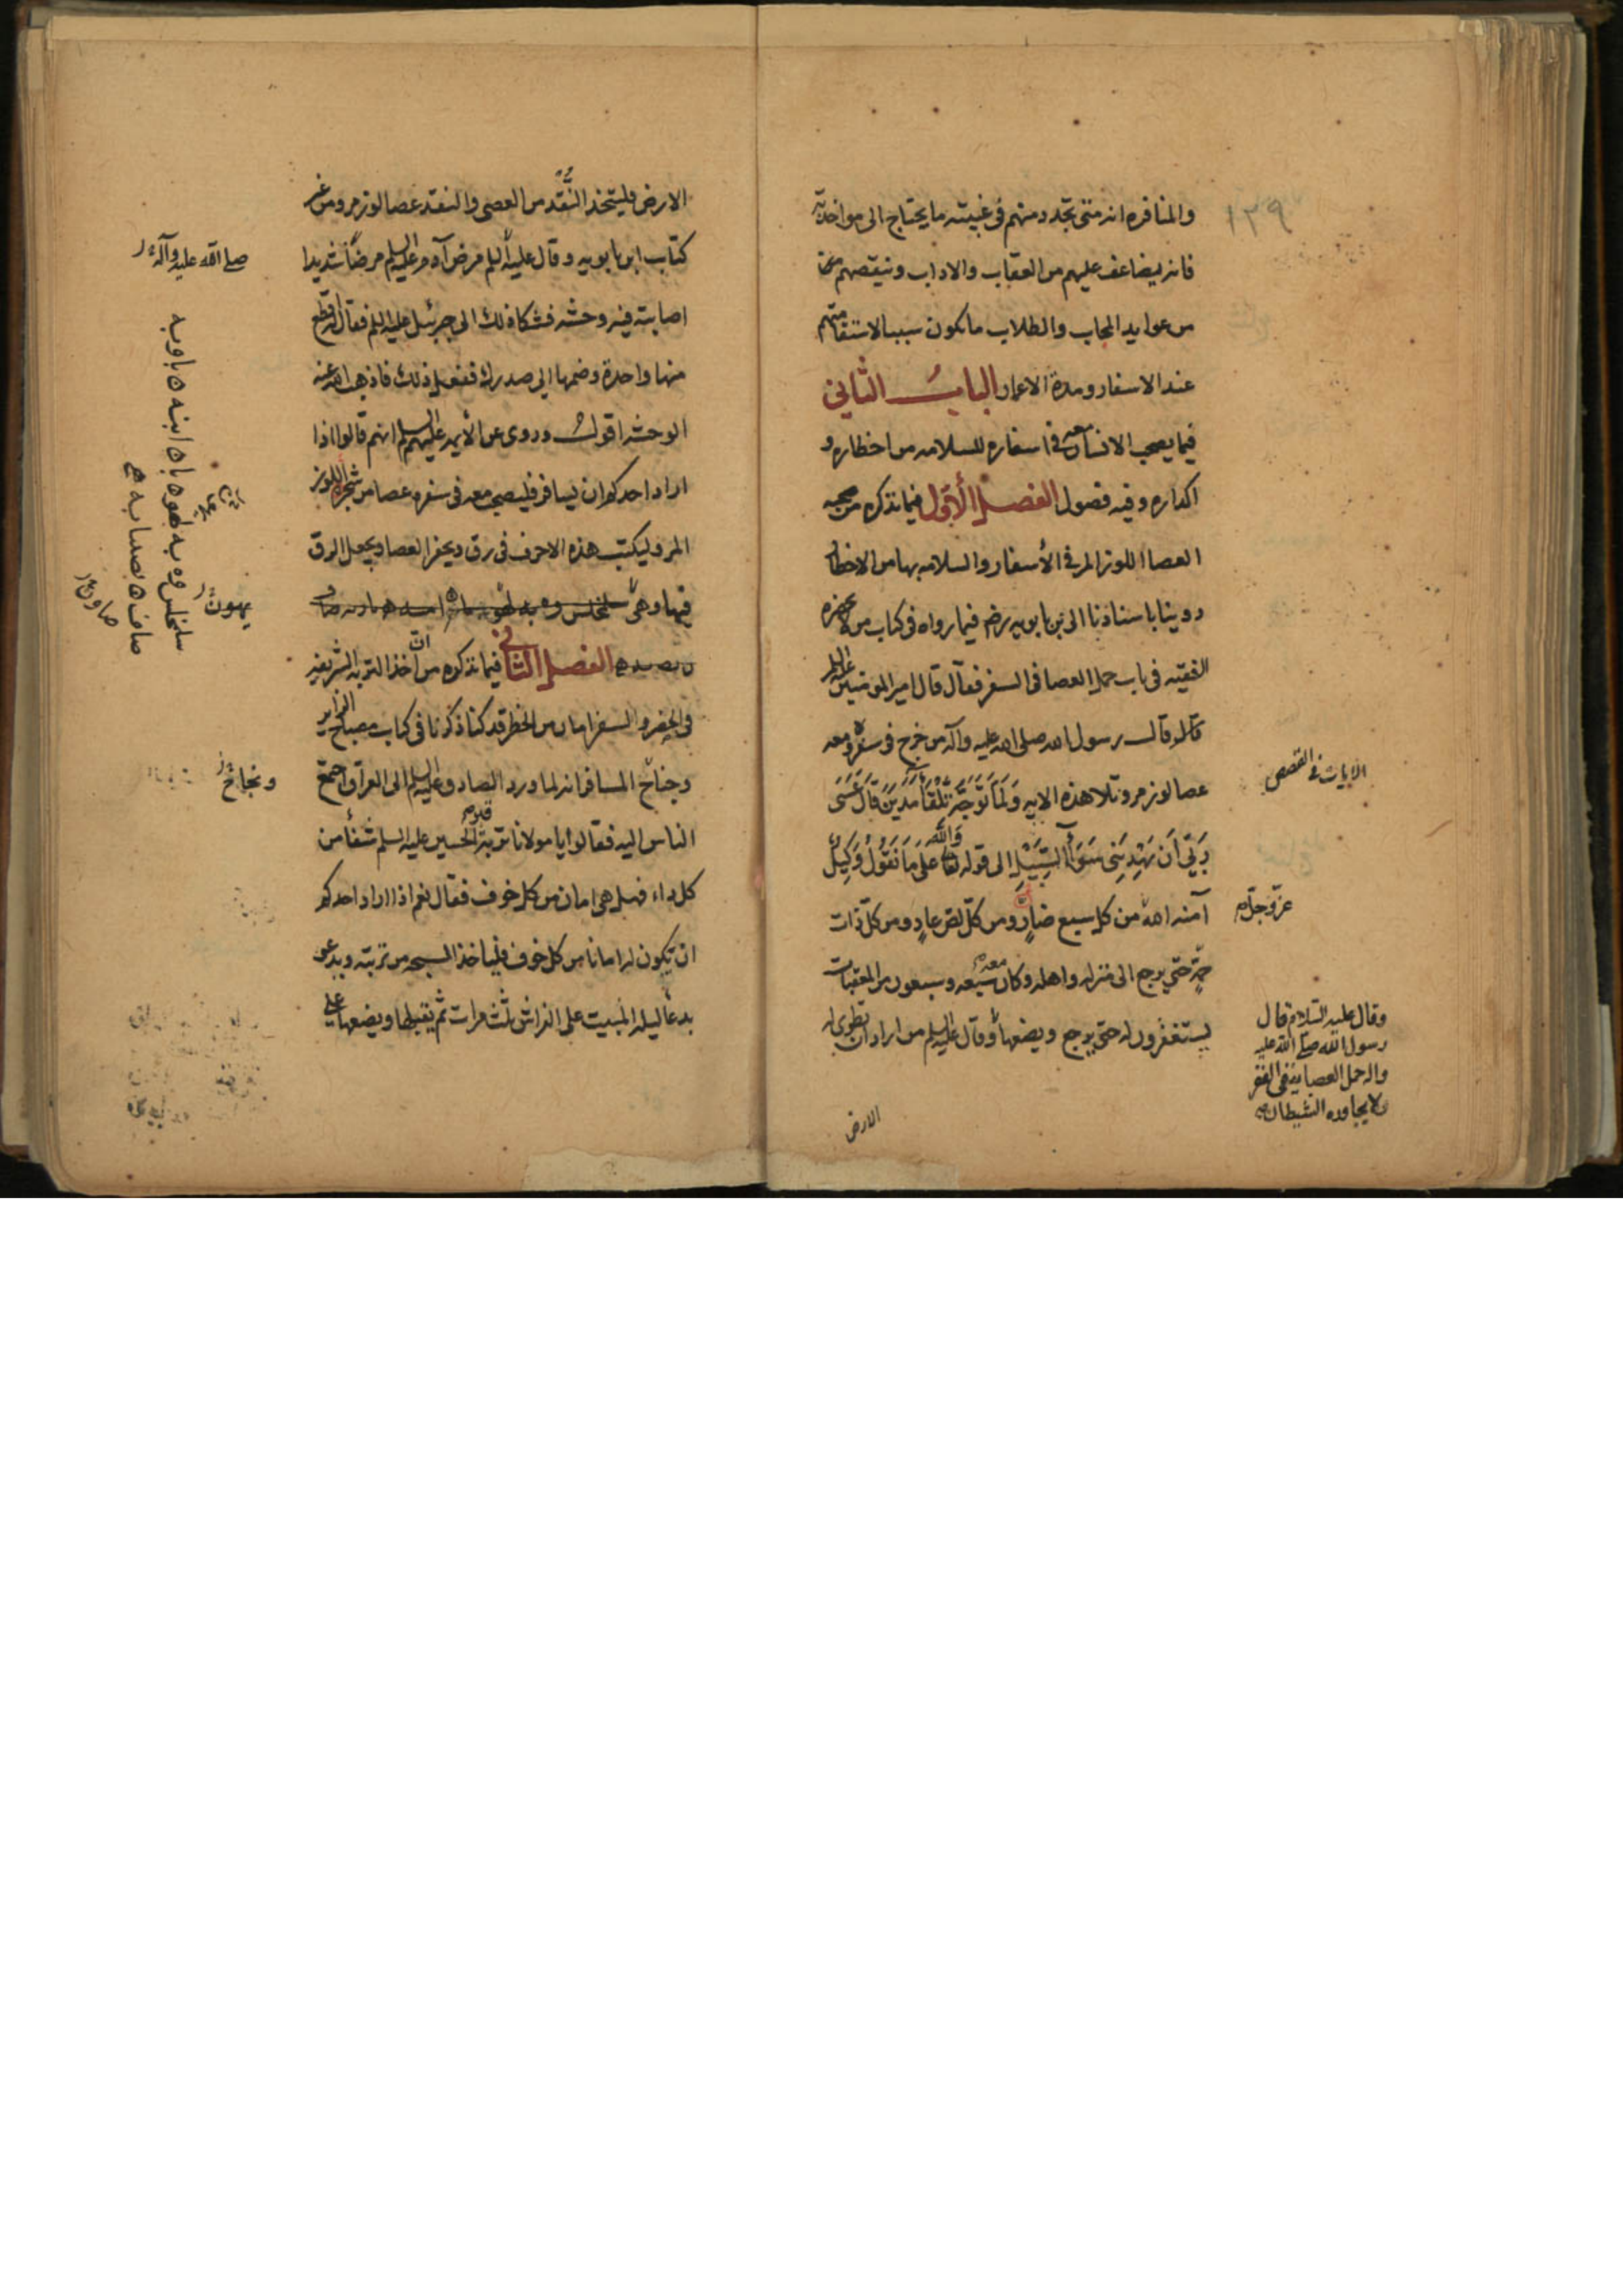 ١٣٩
والمنافره انه متى تجدد منهم فى غيبته ما يحتاج الى مواخذته
فانه يضاعف عليهم من العقاب والاداب وينقصهم
من عوايد المحاب والطلاب ما يكون سببا لاستقامتهم
عند الاسفار ومدة الاعمار الباب الثاني
فيما يصحب الانسان معه فى اسفاره للسلامه من اخطاره و
اكداره وفيه فصول الفصل الأول فيما نذكره من صحبه
العصا اللوز المر فى الأسفار والسلامه بها من الاخطار
روينا باسنادنا الى ابن بابويه رض فيما رواه فى كتاب من لا يحضره
الفقيه فى باب حمل العصا فى السفر فقال قال امير المومنين عليه السلم
قال قال رسول الله صلى الله عليه وآله من خرج فى سفره ومعه
عصا لوز مر وتلا هذه الايه وَلَمَّا تَوَجَّهَ تِلْقَآءَ مَدْيَنَ قَالَ عَسَى
رَبِّي أَن يَهْدِيَنِي سَوَآءَ السَّبِيلِ الى قوله وَاللَّهُ عَلَى مَا نَقُولُ وَكِيلٌ
آمنه الله من كل سبع ضارٍ ومن كل لص عادٍ ومن كل ذات
حمة حتى يرجع الى منزله واهله وكان معه سبعه وسبعون من المعقبات
يستغفرون له حتى يرجع ويضعها وقال عليه السلم من اراد ان تطوى له
الارض
الايات فى القصص
عز وجل
وقال عليه السلام قال
رسول الله صلى الله عليه
واله حمل العصا ينفى الفقر
ولا يجاوره الشيطان
الارض فليتخذ النُّقُد من العصى والنقد عصا لوز مر ومن غير
كتاب ابن بابويه وقال عليه السلم مرض آدم عليه السلم مرضا شديدا
اصابته فيه وحشه فشكا ذلك الى جبرئيل عليه السلم فقال له اقطع
منها واحدة وضمها الى صدرك ففعل ذلك فاذهب الله عنه
الوحشه اقول وروى عن الأيمه عليهم السلم انهم قالوا اذا
اراد احدكم ان يسافر فليصحب معه فى سفره عصا من شجر اللوز
المر وليكتب هذه الاحرف فى رق ويحفر العصا ويجعل الرق
فيها وهى سلخلس وه به
الفصل الثانى فيما نذكره من ان اخذ التربه الشريفه
فى الحضر والسفر امان من الخطر قد كنا ذكرنا فى كتاب مصباح الزاير
وجناح المسافر انه لما ورد الصادق عليه السلم الى العراق اجتمع
الناس اليه فقالوا يا مولانا تربة قبر الحسين عليه السلم شفأ من
كل داء فهل هى امان من كل خوف فقال نعم اذا اراد احدكم
ان تكون له امانا من كل خوف فلياخذ السبحه من تربته ويدعو
بدعأ ليلة المبيت على الفراش ثلث مرات ثم يقبلها ويضعها على
صلى الله عليه وآله
سلخلس وه به لهوه باه ابنه ه باوبه
صاف ه بصدابه ه
يهون
صاون
ونجاح